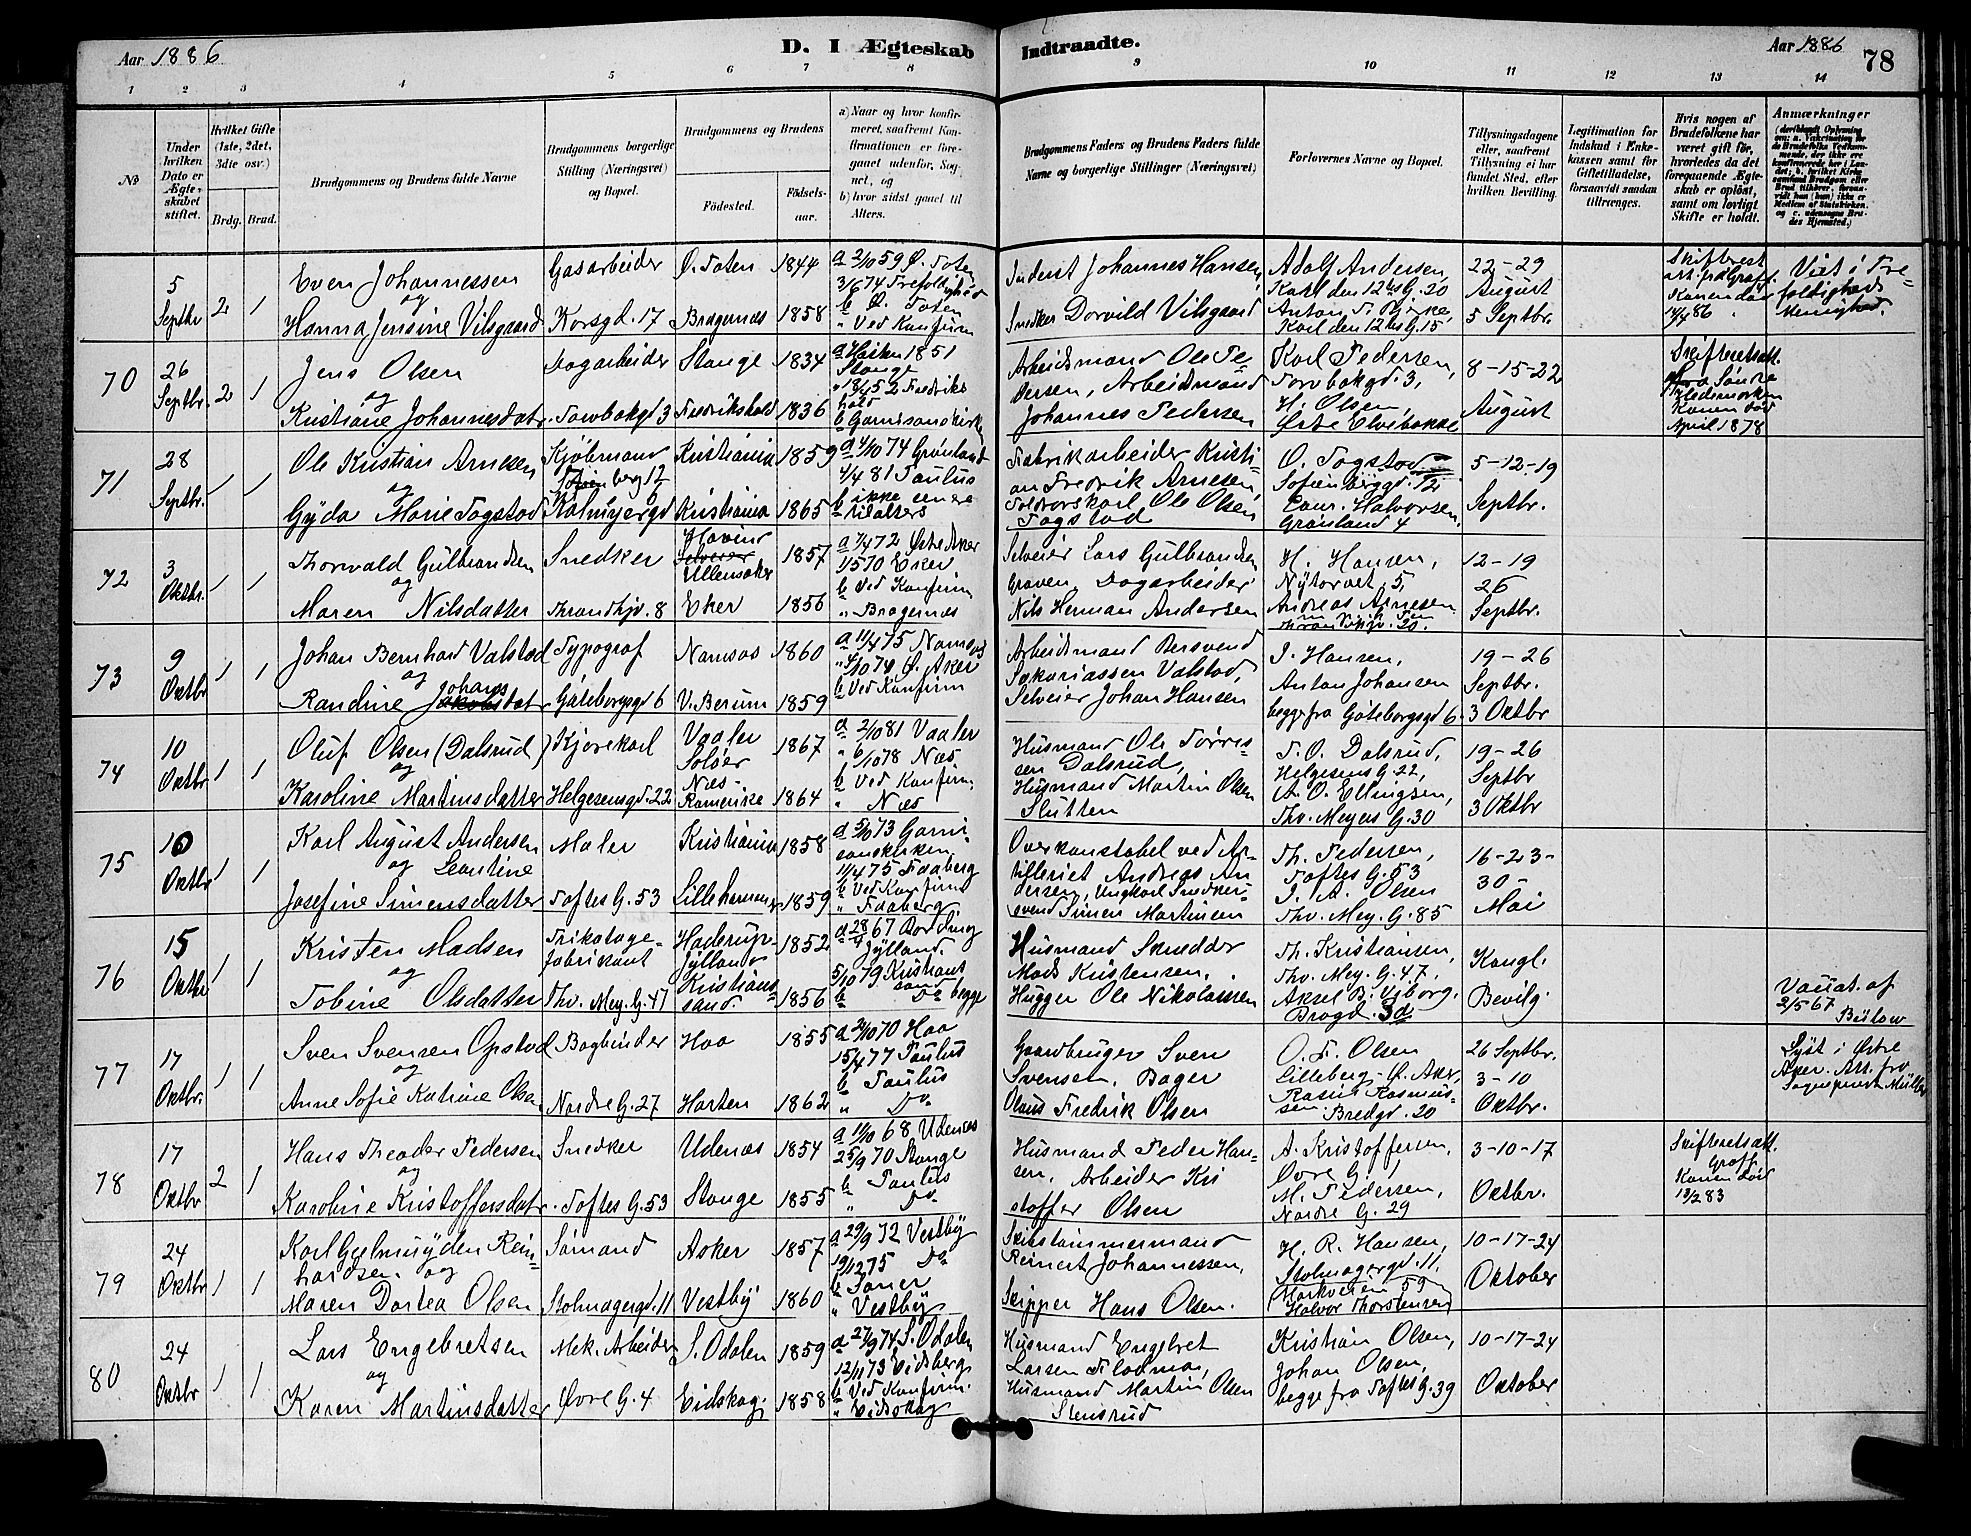 Aar 1886
D. I Ægteskab Indtraadte.
Aar 1886
78
1 2 3 4 5 6 7 8 9 10 11 12 13 14
No
Under hvilken Dato er Ægteskabet stiftet.
Hvilket Gifte (1ste, 2det, 3die osv.)
Brdg. Brud.
Brudgommens og Brudens fulde Navne
Brudgommens borgerlige Stilling (Næringsvei) og Bopæl.
Brudgommens og Brudens
Fødested.
Fødselsaar.
a) Naar og hvor konfirmeret, saafremt Konfirmationen er foregaaet udenfor Sognet, og
b) hvor sidst gaaet til Alters.
Brudgommens Faders og Brudens Faders fulde Navne og borgerlige Stillinger (Næringsvei)
Forlovernes Navne og Bopæl.
Tillysningsdagene eller, saafremt Tillysning ei har fundet Sted, efter hvilken Bevilling.
Legitimation for Indskud i Enkekassen samt for Giftetilladelse, forsaavidt saadan tiltrænges.
Hvis nogen af Brudefolkene har været gift før, hvorledes da det foregaaende Ægteskab er opløst, samt om lovligt Skifte er holdt.
Anmærkninger
5 Septbr 2 1
Even Johannessen
og
Hanna Jensine Vilsgaard
Gasarbeider
Korsgd. 17
Ø. Toten 1844
Bragernæs 1858
a 2/10 59 Ø. Toten
3/6 74 Trefoldighed
b Ø. Toten
" Ved Konfirm
Inderst Johannes Hansen
Snedker Dorvild Vilsgaard
Adolf Andersen,
Karl den 12tes G. 20
Karl den 12tes G. 15
22-29
August
5 Septbr.
Viet i Trefoldigheds Menighed.
70
26 Septbr. 2 1
Jens Olsen
og
Kristiane Johannesdat.
Dagarbeider
Torvbakgd 3
Stange 1834
Fredrikshald 1836
a Høsten 1851
Stange
b Garnisonskirken
Arbeidsmand Ole Pedersen, Arbeidsmand
Johannes Pedersen
Karl Pedersen,
Torvbakgd. 3,
H. Olsen,
8-15-22
August
Konen død
April 1878
71
28 Septbr. 1 1
Ole Kristian Arnesen,
og
Gyda Marie Fagstad
Kjøbmand
Kristiania 1859
Kristiania 1865
a 4/10 74 Grønland
4/4 81 Paulus
b ikke senere
tilalters
Fabrikarbeider Kristian Fredrik Arnesen,
Ole Olsen
Fagstad
O. Fagstad
Sofienbergd. 12
Halvorsen,
Grønland 4
5-12-19
Septbr.
72
3 Oktbr. 1 1
Thorvald Gulbrandsen
og
Maren Nilsdatter
Snedker
Throndhjv. 8
Ullensaker 1857
Eker 1856
a 7/4 72 Østre Aker
1/5 70 Eker
b Ved Konfirm
" Bragernæs
Selveier Lars Gulbrandsen
Graven, Dagarbeider
Nils Herman Andersen
H. Hansen,
Nytorvet 5,
Andreas Arnesen
12-19
26
Septbr.
73
9 Oktbr 1 1
Johan Bernhard Valstad
og
Randine Johansdat.
Typograf
Göteborggd 6
Namsos 1860
V. Bærum 1859
a 11/4 75 Namsos
" 4/10 74 Ø. Aker
b Ved Konfirm
Arbeidsmand Bersvend
Sakariassen Valstad,
Selveier Johan Hansen
J. Hansen,
Anton Johansen
begge fra Göteborggd 6.
19-26
Septbr.
3 Oktbr
74
10 Oktbr 1 1
Oluf Olsen (Dalsrud)
og
Karoline Martinsdatter
Kjørekarl
Helgesensgd. 22
Vaaler
Solør 1867
Næs
Romerike 1864
a 2/10 81 Vaaler
" 6/10 78 Næs
b Ved Konfirm
" Næs
Husmand Ole Torressen Dalsrud,
Husmand Martin Olsen
Slutten
T. O. Dalsrud,
Helgesens G. 22,
A. O. Ellingsen,
Thv. Meyers G. 30
19-26
Septbr
3 Oktbr
75
10 Oktbr 1 1
Karl August Andersen
og Leontine
Josefine Simensdatter
Maler
Toftes G. 53
Kristiania 1858
Lillehammer 1859
a 5/10 73 Garnisonskirken
11/4 75 Faaberg
b Ved Konfirm
" Faaberg
Overkonstabel ved Artilleriet Andreas Andersen, Ungkarl Snedkersvend Simen Martinsen
Th. Pedersen,
Toftes G. 53
J. A. Olsen
Thv. Mey. G. 85
16-23-
30-
Mai
76
15 Oktbr 1 1
Kristen Madsen
og
Tobine Olsdatter
Trikotagefabrikant
Thv. Mey. G. 47
Haderup Jylland 1852
Kristianssand. 1856
a 28/4 67 Bording
Jylland.
5/10 79 Kristianssand
b Do begge
Husmand Skrædder
Mads Kristensen,
Hugger Ole Nikolaisen
Th. Kristiansen,
Thv. Mey. G. 47,
Aksel B. Viborg,
Brogd. 3a
Kongl.
Bevilg.
Vaccat. af
2/5 67
Bülow
77
17 Oktbr. 1 1
Sven Svensen Opstad
og
Anne Sofie Katrine Olsen
Bogbinder
Nordre G. 27
Haa 1855
Horten 1862
a 2/10 70 Haa
15/4 77 Paulus
b Paulus
" Do.
Gaardbruger Sven
Svensen, Bager
Olaus Fredrik Olsen
O. F. Olsen
Lilleberg - Ø. Aker,
Rasmus Rasmussen
Bredgd. 20
26 Septbr.
3-10
Oktbr.
Lyst i Østre
Aker. Att. fra
Sogneprest Müller
78
17 Oktbr 2 1
Hans Theodor Pedersen
og
Karoline Kristoffersdatr.
Snedker
Toftes G. 53
Udenæs 1854
Stange 1855
a 11/10 68 Udenæs
25/9 70 Stange
b Paulus
" Do.
Husmand Peder Hansen, Arbeider Kristoffer Olsen
A. Kristoffersen,
Øvre G. 1
M. Pedersen,
Nordre G. 29
3-10-17
Oktbr.
Skifteretsatt.
Graff.
Konen død
13/2 83
79
24 Oktbr 1 1
Karl Gjelmuyden Reinhardsen. og
Maren Dortea Olsen
Sømand
Stolmagergd. 11
Asker 1857
Vestby 1860
a 29/9 72 Vestby
19/12 75 Do.
b Joner
" Vestby
Skibstømmermand
Reinert Johannessen,
Skipper Hans Olsen.
H. R. Hansen,
Stolmagergd. 11,
Markveien 59
Halvor Thorstensen
10-17-24
Oktober
80
24 Oktbr 1 1
Lars Engebretsen
og
Karen Martinsdatter
Mek. Arbeider
Øvre G. 4
S. Odalen 1859
Eidskog 1858
a 27/9 74 S. Odalen
12/11 73 Eidsberg
b Ved Konfirm.
" Eidskog
Husmand Engebret
Larsen Flodmoe,
Husmand Martin Olsen
Stensrud
Kristian Olsen,
Johan Olsen,
begge fra Toftes G. 39
10-17-24
Oktober